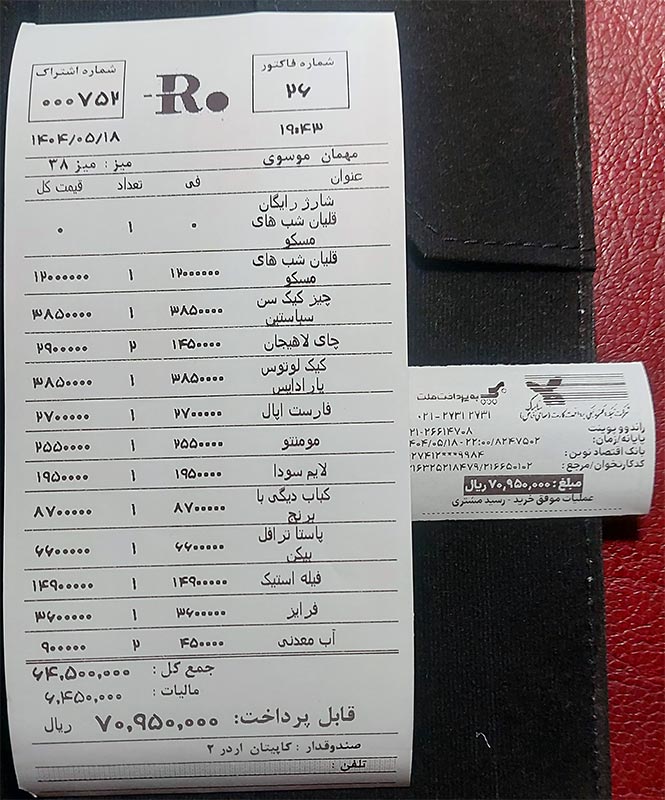 شماره فاکتور
۲۶
R.
شماره اشتراک
۰۰۰۷۵۲
۱۹:۴۳ ۱۴۰۴/۰۵/۱۸
مهمان موسوی میز : میز ۳۸
عنوان فی تعداد قیمت کل
شارژ رایگان
قلیان شب های ۰ ۱ ۰
مسکو
قلیان شب های ۱۲۰۰۰۰۰۰ ۱ ۱۲۰۰۰۰۰۰
مسکو
چیز کیک سن ۳۸۵۰۰۰۰ ۱ ۳۸۵۰۰۰۰
سباستین
چای لاهیجان ۱۴۵۰۰۰۰ ۲ ۲۹۰۰۰۰۰
کیک لوتوس ۳۸۵۰۰۰۰ ۱ ۳۸۵۰۰۰۰
پارادایس
فارست اپال ۲۷۰۰۰۰۰ ۱ ۲۷۰۰۰۰۰
مومنتو ۲۵۵۰۰۰۰ ۱ ۲۵۵۰۰۰۰
لایم سودا ۱۹۵۰۰۰۰ ۱ ۱۹۵۰۰۰۰
کباب دیگی با ۸۷۰۰۰۰۰ ۱ ۸۷۰۰۰۰۰
برنج
پاستا ترافل ۶۶۰۰۰۰۰ ۱ ۶۶۰۰۰۰۰
بیکن
فیله استیک ۱۴۹۰۰۰۰۰ ۱ ۱۴۹۰۰۰۰۰
فرایز ۳۶۰۰۰۰۰ ۱ ۳۶۰۰۰۰۰
آب معدنی ۴۵۰۰۰۰ ۲ ۹۰۰۰۰۰
جمع کل : ۶۴,۵۰۰,۰۰۰
مالیات : ۶,۴۵۰,۰۰۰
قابل پرداخت: ۷۰,۹۵۰,۰۰۰ ریال
صندوقدار : کاپیتان اردر ۲
تلفن :
به پرداخت ملت
۰۲۱-۲۷۳۱ ۲۷۳۱
راندوو پوینت
۲۱-۲۶۶۱۴۷۰۸
پایانه/زمان: ۴۰۴/۰۵/۱۸ - ۲۲:۰۰/۸۲۴۷۵۰۲
بانک اقتصاد نوین: ۲۷۴۱۲***۹۹۸۴
کدکارتخوان/مرجع: ۲۱۶۳۲۵۲۱۸۴۷۹/۲۱۶۶۵۰۱۰۲
مبلغ: ۷۰,۹۵۰,۰۰۰ ریال
عملیات موفق خرید - رسید مشتری